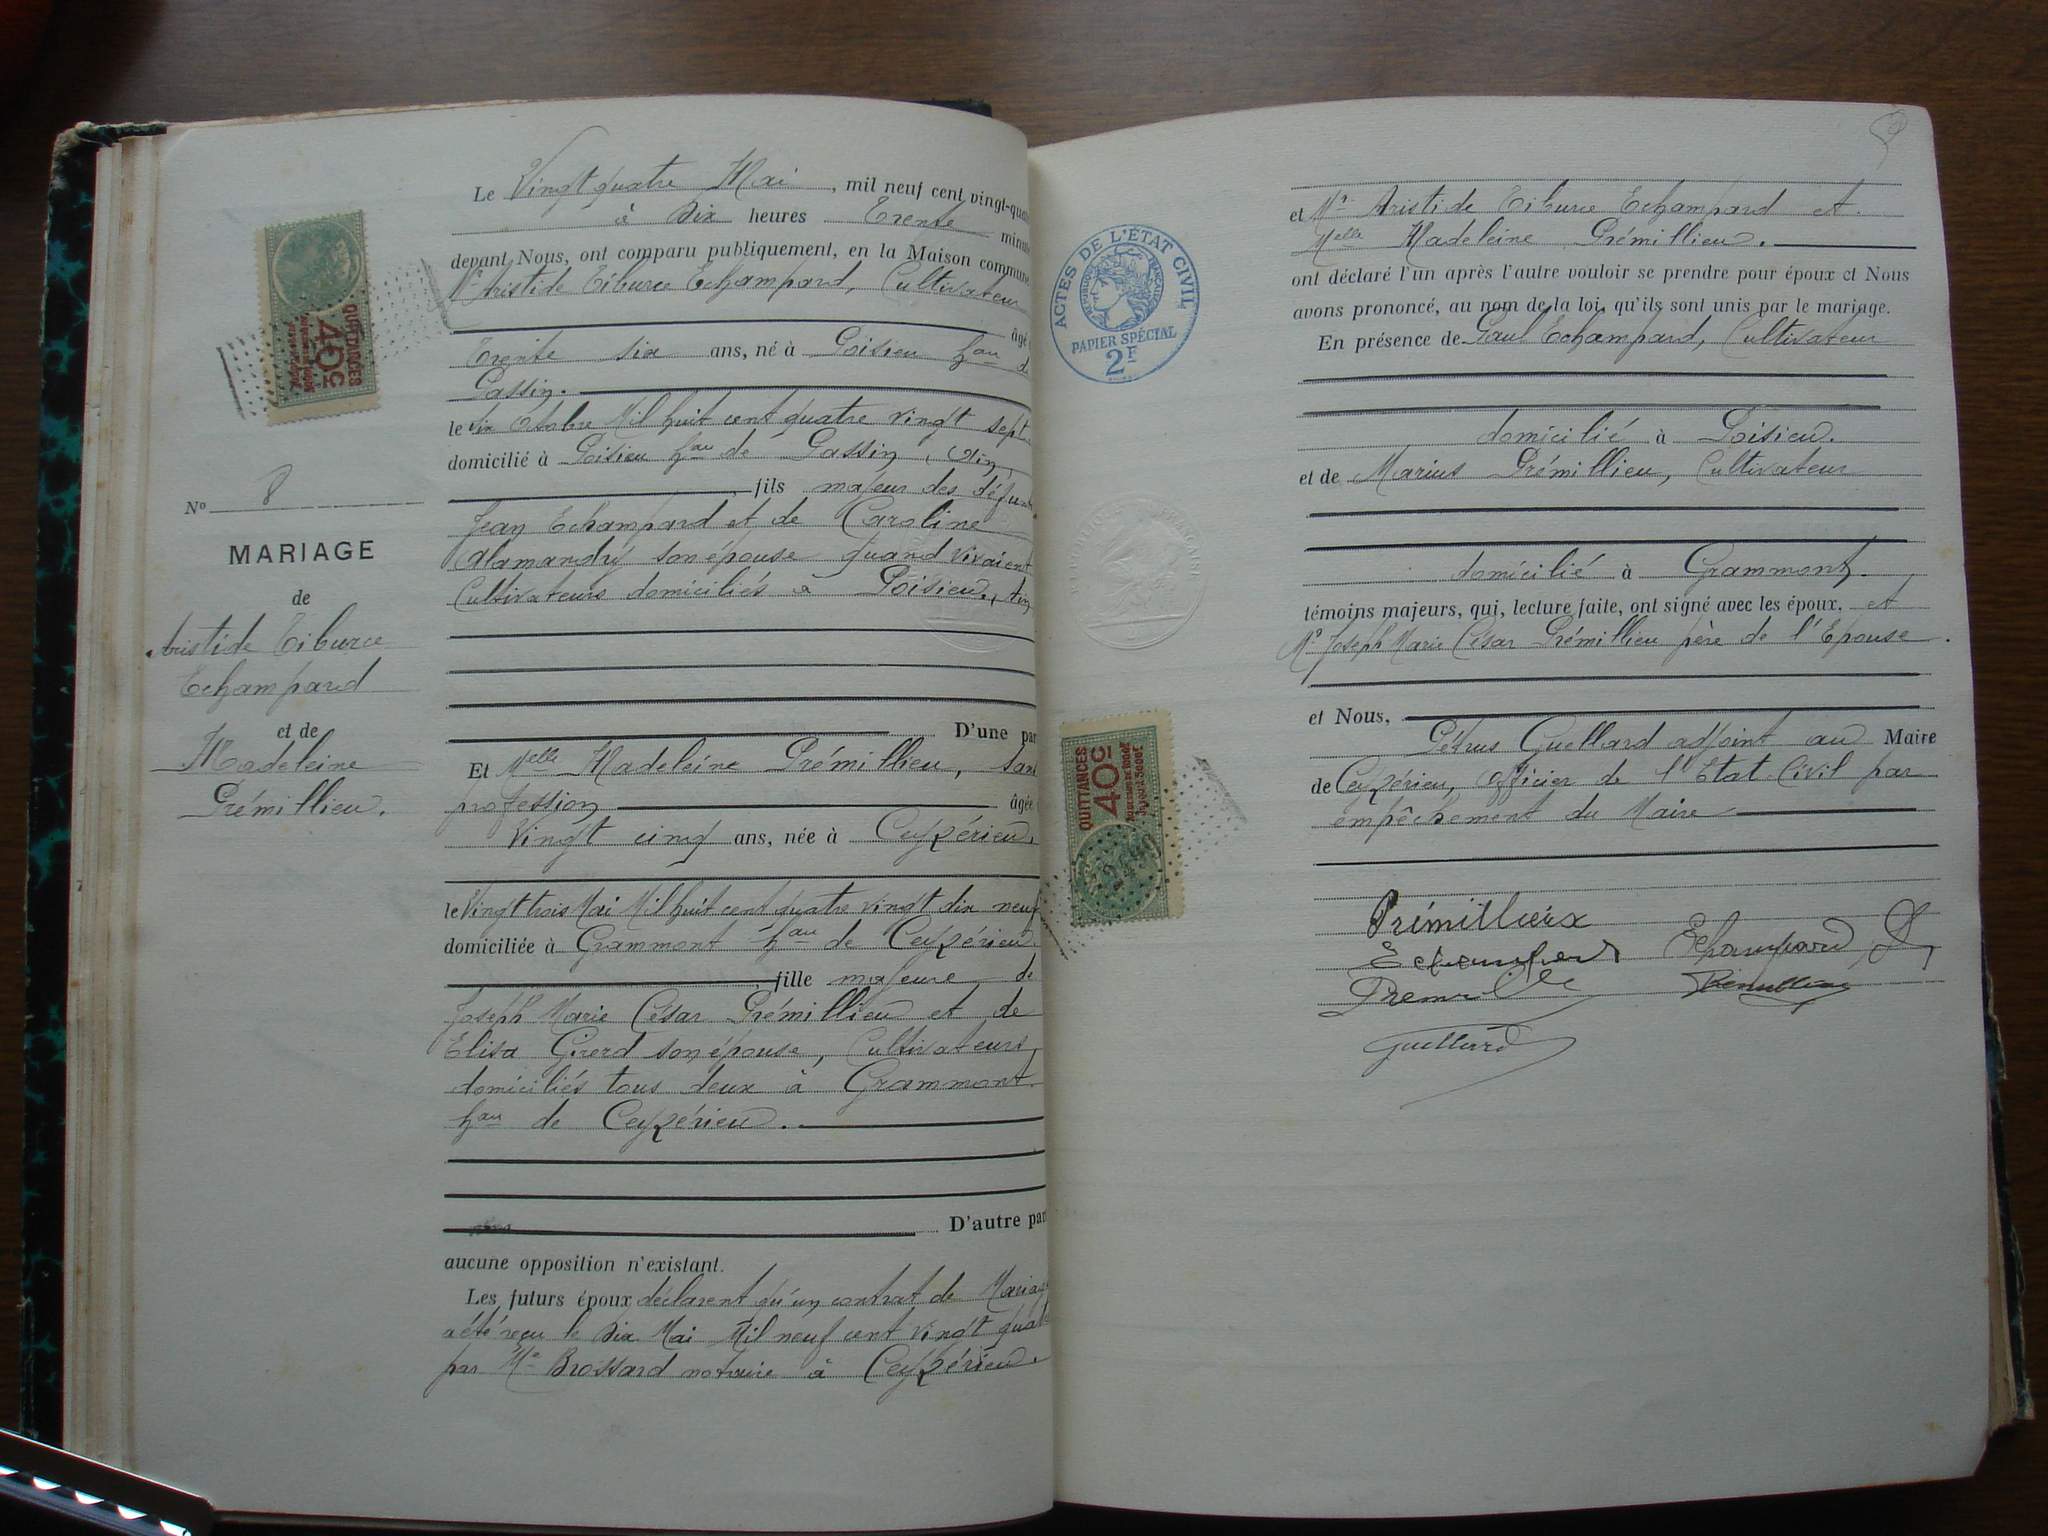 Le Vingt quatre Mai, mil neuf cent vingt-qua
à Dix heures Trente minute
devant Nous, ont comparu publiquement, en la Maison commune
Mr Aristide Tiburce Echampard, Cultivateur
âgé
Trente six ans, né à Poisieu hau d
Passin.
le Six Octobre Mil huit cent quatre vingt sept
domicilié à Poisieu hau de Passin, (Ain)
fils majeur des défunts
Jean Echampard et de Caroline
Alamandry son épouse quand vivaient
Cultivateurs domiciliés à Poisieu, Ain
D'une par
Et Melle Madeleine Prémillieu, Sans
profession âgée
Vingt cinq ans, née à Ceyzérieu.
le Vingt trois Mai Mil huit cent quatre vingt dix neuf
domiciliée à Grammont hau de Ceyzérieu
fille majeure de
Joseph Marie César Prémillieu et de
Elisa Girerd son épouse, Cultivateurs,
domiciliés tous deux à Grammont
hau de Ceyzérieu.
D'autre par
aucune opposition n'existant.
Les futurs époux déclarent qu'un contrat de Mariage
a été reçu le Dix Mai Mil neuf cent vingt quatre
par Me Brossard notaire à Ceyzérieu.
QUITTANCES
40c
No 8
MARIAGE
de
Aristide Tiburce
Echampard
et de
Madeleine
Prémillieu.
et Mr Aristide Tiburce Echampard et
Melle Madeleine Prémillieu.
ont déclaré l'un après l'autre vouloir se prendre pour époux et Nous
avons prononcé, au nom de la loi, qu'ils sont unis par le mariage.
En présence de Paul Echampard, Cultivateur
domicilié à Poisieu.
et de Marius Prémillieu, Cultivateur
domicilié à Grammont.
témoins majeurs, qui, lecture faite, ont signé avec les époux, et
Mr Joseph Marie César Prémillieu père de l'Epouse.
et Nous,
Pétrus Guellard adjoint au Maire
de Ceyzérieu, officier de l'Etat-Civil par
empêchement du Maire
Prémillieux
Echampard
Echampard
Prémillieu
Guellard
ACTES DE L'ÉTAT CIVIL
RÉPUBLIQUE FRANÇAISE
PAPIER SPÉCIAL
2F
QUITTANCES
40c